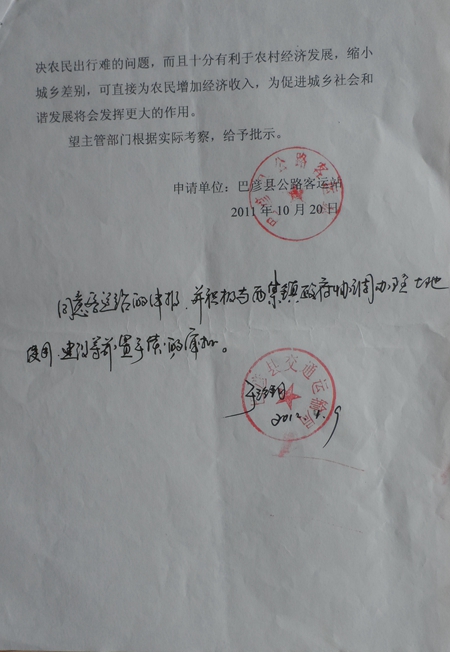 决农民出行难的问题，而且十分有利于农村经济发展，缩小
城乡差别，可直接为农民增加经济收入，为促进城乡社会和
谐发展将会发挥更大的作用。
望主管部门根据实际考察，给予批示。
申请单位：巴彦县公路客运站
2011年10月20日
巴彦县公路客运站
同意客运站的申报，并积极与西集镇政府协调办理土地
使用 建设等前置手续
巴彦县交通运输局